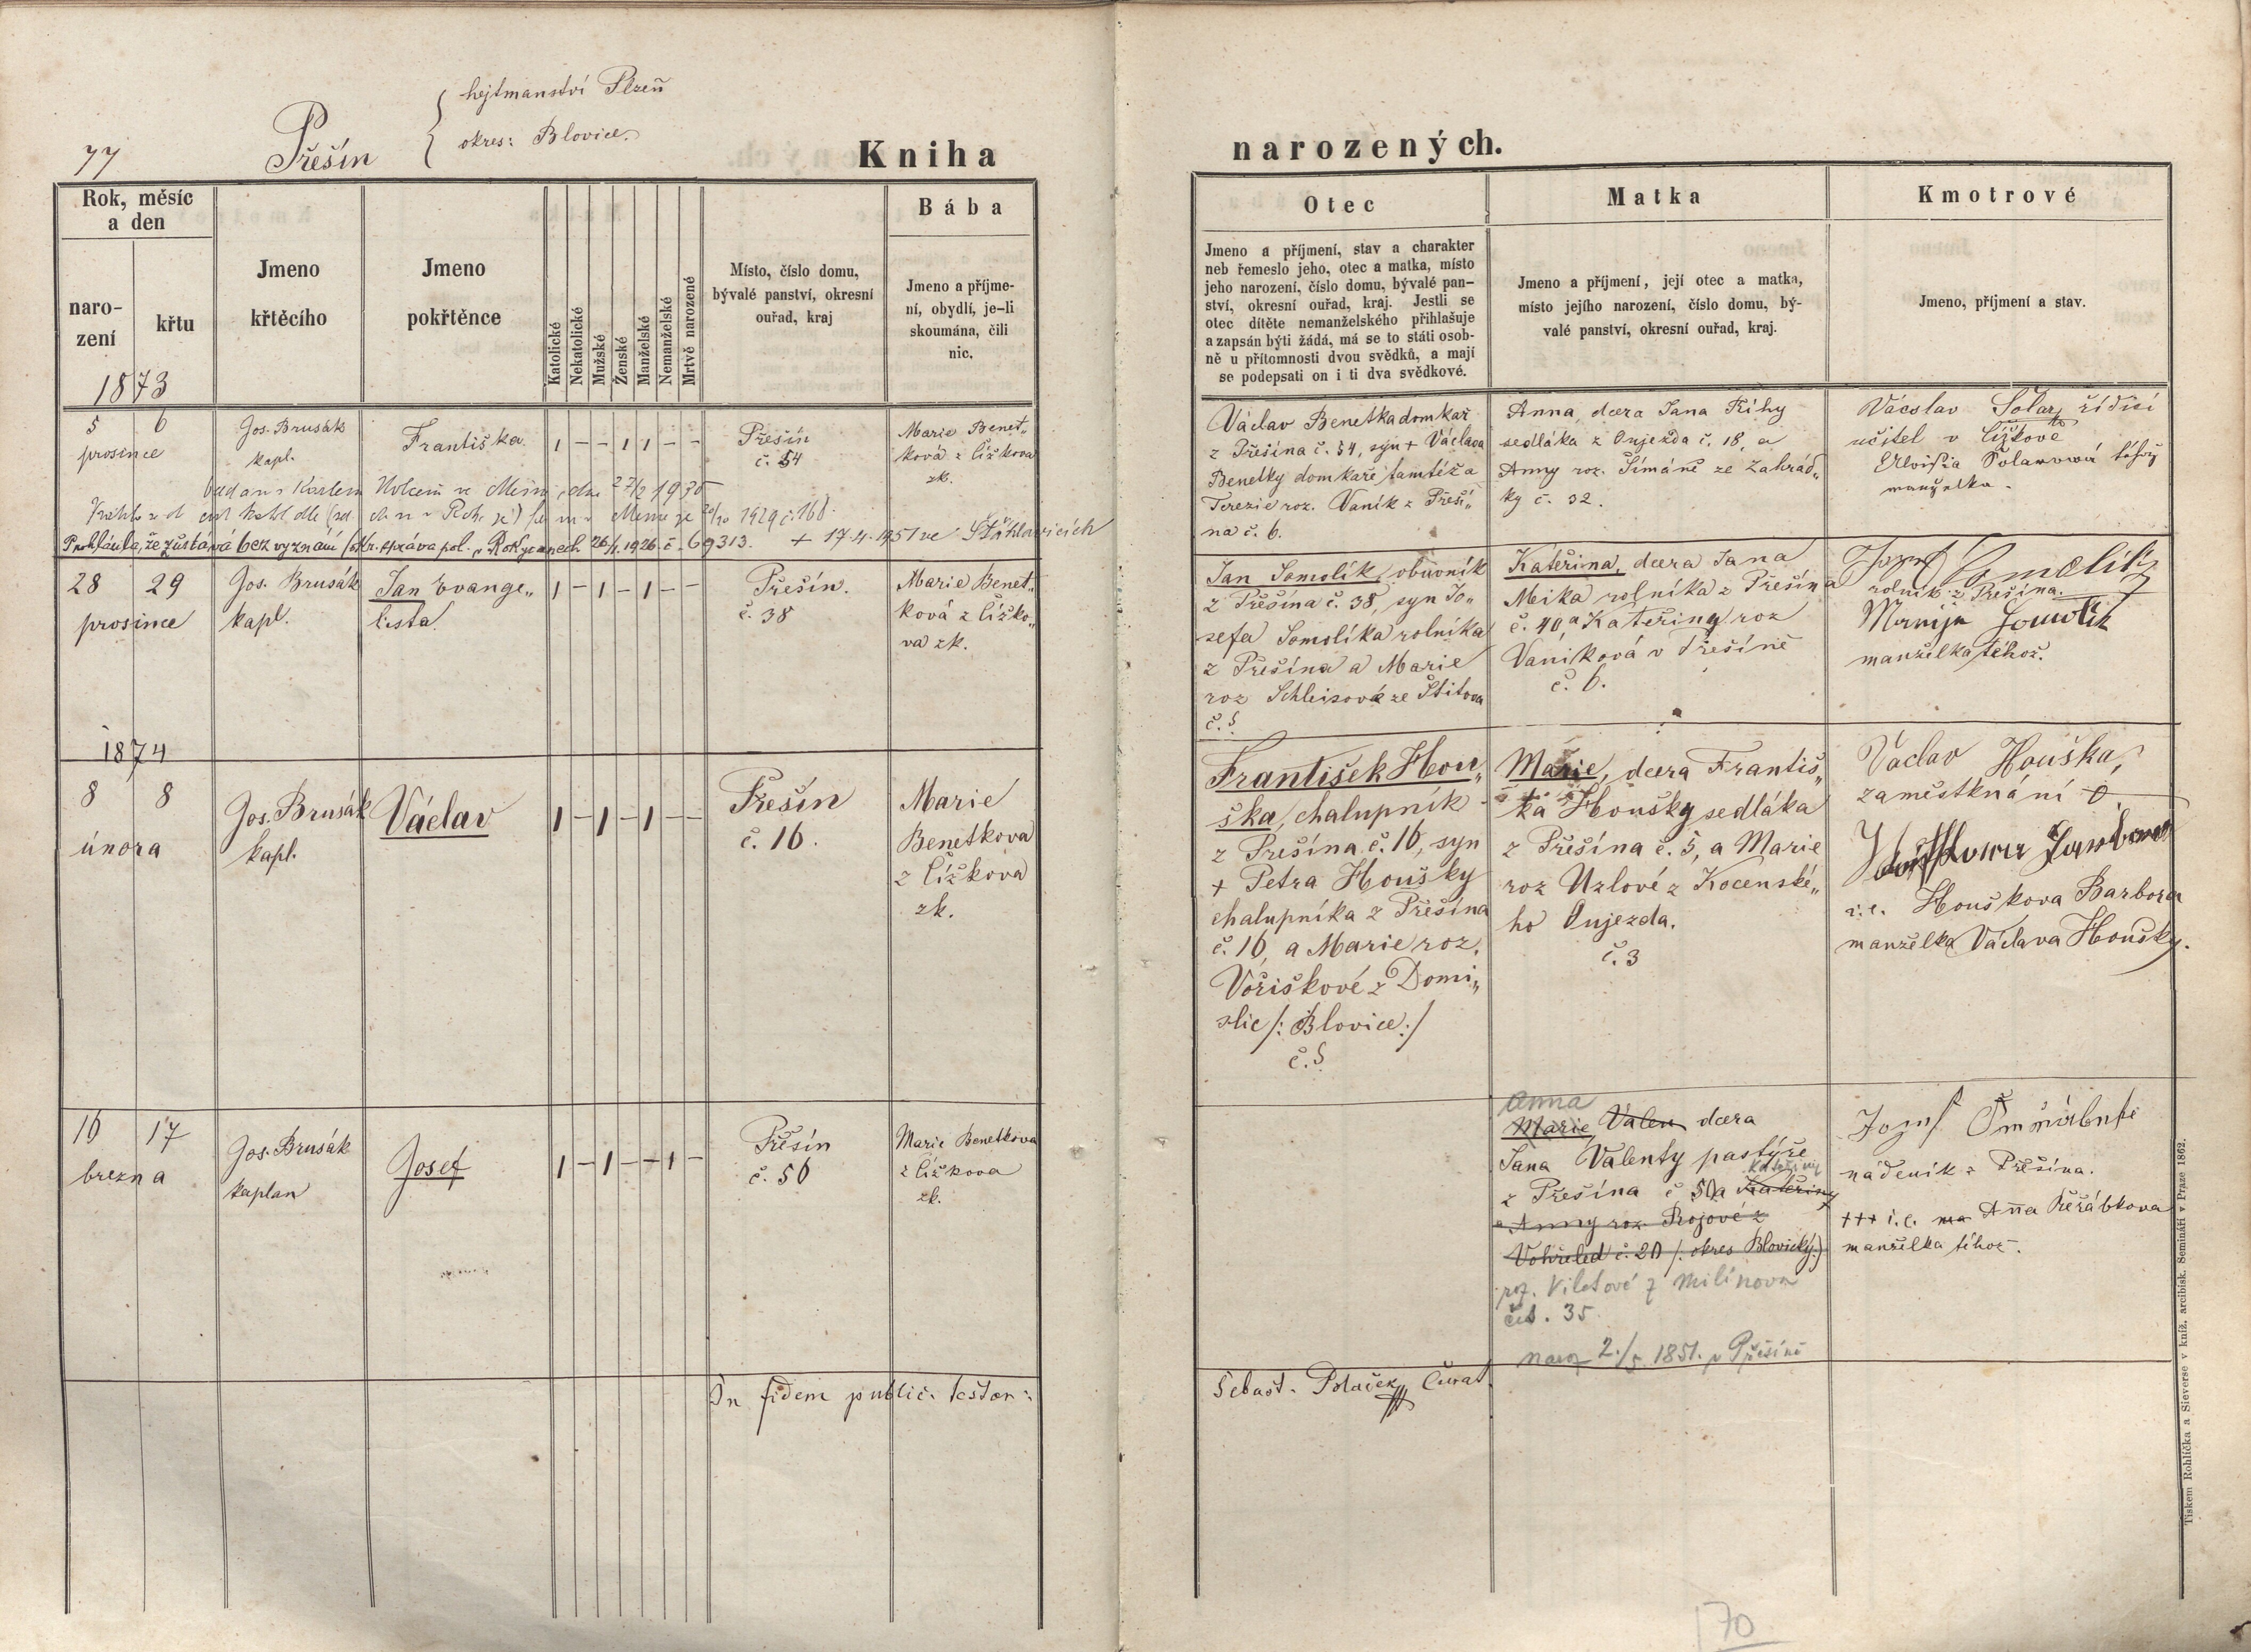 77
Přešín
hejtmanství Plzeň
okres: Blovice.
Kniha
Rok, měsíc
a den
naro-
zení
křtu
Jmeno
křtěcího
Jmeno
pokřtěnce
Katolické
Nekatolické
Mužské
Ženské
Manželské
Nemanželské
Mrtvě narozené
Místo, číslo domu,
bývalé panství, okresní
ouřad, kraj
Bába
Jmeno a příjme-
ní, obydlí, je-li
skoumána, čili
nic.
1873
5 6
prosince
Jos. Brusák
kapl.
Františka
1 – – 1 1 – –
Přešín
č. 54
Marie Benet„
ková z Čížkova
zk.
oddána s Karlem 27/2 1930
20/10 1929 č. 168.
Prohlásila, že zůstává bez vyznání (okr. správa pol. v Rokycanech 26/1. 1926. č. 69313. + 17.4.1951 ve Štáhlavicích
28 29
prosince
Jos. Brusák
kapl.
Jan Evange„
lista
1 – 1 – 1 – –
Přešín.
č. 38
Marie Benet„
ková z Čížko„
va zk.
1874
8 8
února
Jos. Brusák
kapl.
Václav
1 – 1 – 1 – –
Přešín
č. 16.
Marie
Benetkova
z Čížkova
zk.
16 17
brezna
Jos. Brusák
kaplan
Josef
1 – 1 – – 1 –
Přešín
č. 50
Marie Benetkova
z Čížkova
zk.
In fidem public. testor:
narozených.
Otec
Jmeno a příjmení, stav a charakter
neb řemeslo jeho, otec a matka, místo
jeho narození, číslo domu, bývalé pan-
ství, okresní ouřad, kraj. Jestli se
otec dítěte nemanželského přihlašuje
a zapsán býti žádá, má se to státi osob-
ně u přítomnosti dvou svědků, a mají
se podepsati on i ti dva svědkové.
Matka
Jmeno a příjmení, její otec a matka,
místo jejího narození, číslo domu, bý-
valé panství, okresní ouřad, kraj.
Kmotrové
Jmeno, příjmení a stav.
Václav Benetka domkař
z Přešína č. 54, syn + Václava
Benetky domkaře tamtéž a
Terezie roz. Vaník z Přeší„
na č. 6.
Anna, dcera Jana Říhy
sedláka z Oujezda č. 18, a
Anny roz. Šímáně ze Zahrád„
ky č. 32.
Vácslav Solar, řídící
učitel v Čížkově
Solarová téhož
manželka.
Jan Somolík, obuvník
z Přešína č. 38, syn Jo„
sefa Somolíka rolníka
z Přešína a Marie
roz Schleisové ze Štítova
č. 5
Kateřina, dcera Jana
Meika rolníka z Přešína
č. 40, a Kateřiny roz
Vaniková v Přešíně
č. 6.
Jozef Somolik
rolník z Přešína.
Marije Somolik
manželka téhož.
František Hou„
ška, chalupník
z Přešína č. 16, syn
+ Petra Houšky
chalupníka z Přešína
č. 16, a Marie roz.
Voříškové z Domi„
slic /: Blovice :/
č. 5
Marie, dcera Františ„
ka Houšky sedláka
z Přešína č. 5, a Marie
roz Uzlové z Kocenské„
ho Oujezda.
č. 3
Václav Houška,
zaměstknání 0.
i.e. Houškova Barbora
manželka Václava Houšky.
Anna
Marie Valen dcera
Jana Valenty pastýře
Kateřiny
z Přešína č 50 a Kateřiny
a Anny roz. Rojové z
Vohřeled č. 20 /: okres Blovický:)
roz. Viletové z Milínova
čís. 35.
naroz 2./5 1851. v Přešíně
Jozef
nádeník z Přěšína.
+++ i.e. Anna Řeřábkova
manželka téhož.
Sebast. Polaček Curat.
70
Tiskem Rohlíčka a Sieverse v kníž. arcibisk. Semináři v Praze 1862.